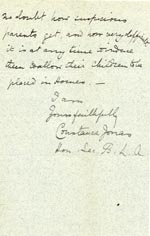 no doubt how suspicious
parents get, and how very difficult
it is at any time to induce
them to allow their children to be
placed in Homes. —
I am
Yours faithfully
Constance Jones
Hon. Sec. B. L. A.